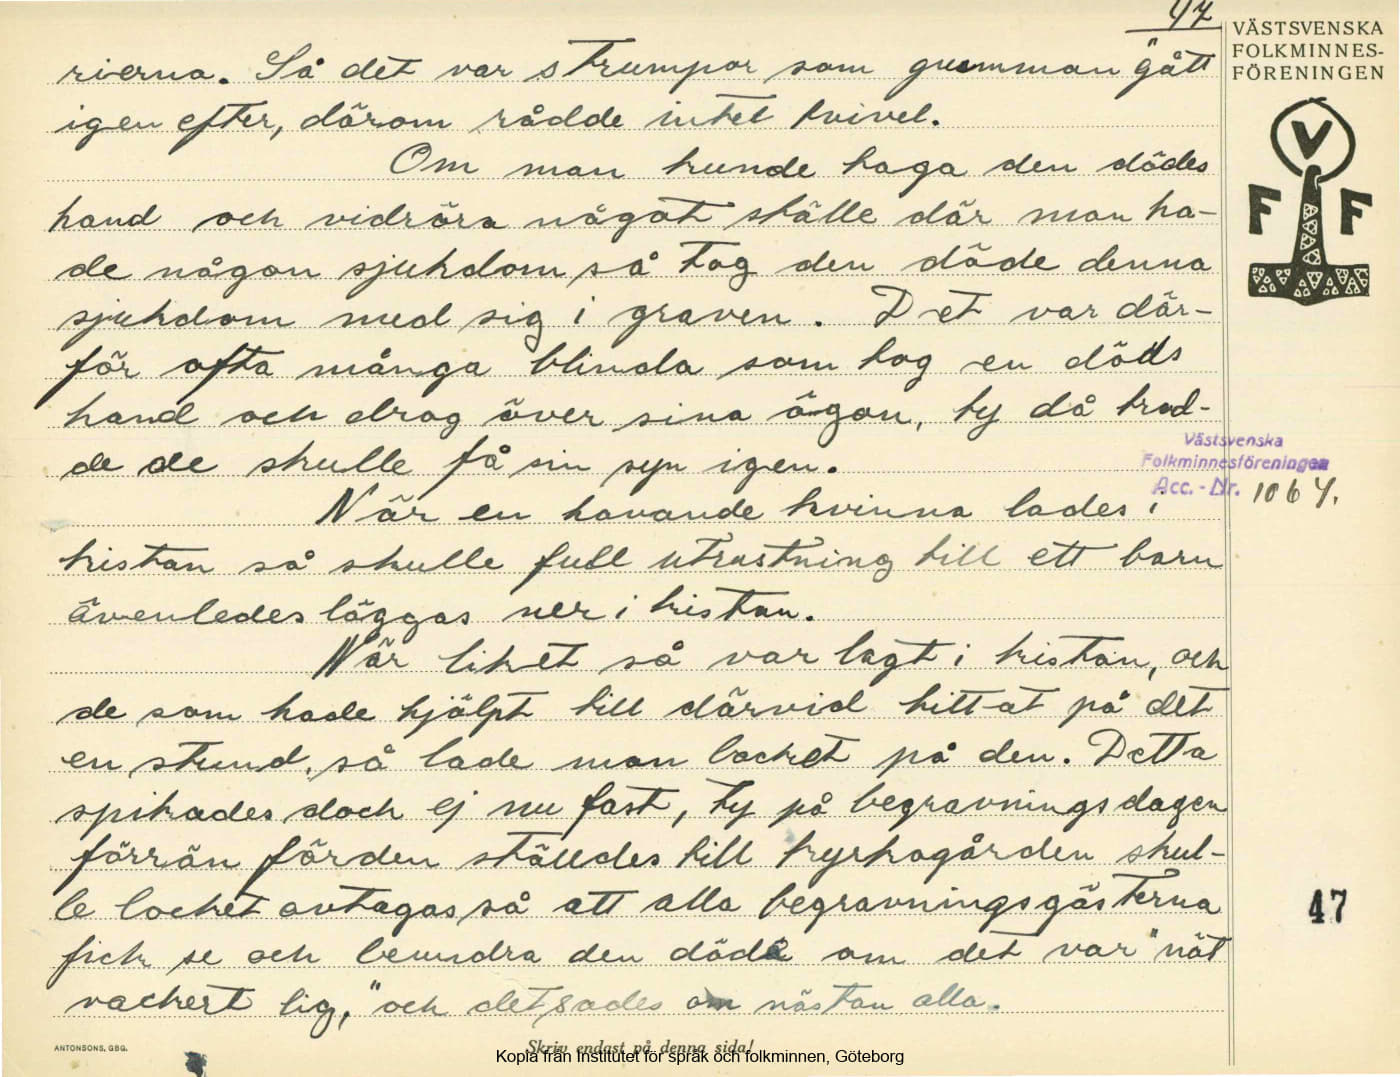 47
VÄSTSVENSKA
FOLKMINNES-
FÖRENINGEN
V
F F
rierna. Så det var strumpor som gumman "gått
igen efter, därom rådde intet tvivel.
Om man kunde taga den dödes
hand och vidröra något ställe där man ha-
de någon sjukdom så tog den döde denna
sjukdom med sig i graven. Det var där-
för ofta många blinda som tog en döds
hand och drog över sina ögon, ty då trod-
de de skulle få sin syn igen.
Västsvenska
Folkminnesföreningen
Acc. - Nr. 1064.
När en havande kvinna lades i
kistan så skulle full utrustning till ett barn
ävenledes läggas ner i kistan.
När liket så var lagt i kistan, och
de som hade hjälpt till därvid tittat på det
en stund, så lade man locket på den. Detta
spikades dock ej nu fast, ty på begravningsdagen
förrän färden ställdes till kyrkogården skul-
le locket avtagas så att alla begravningsgästerna
47
fick se och beundra den döde om det var "nöt
vackert lig," och det sades om nästan alla.
ANTONSONS, GBG.
Skriv endast på denna sida!
Kopia från Institutet för språk och folkminnen, Göteborg